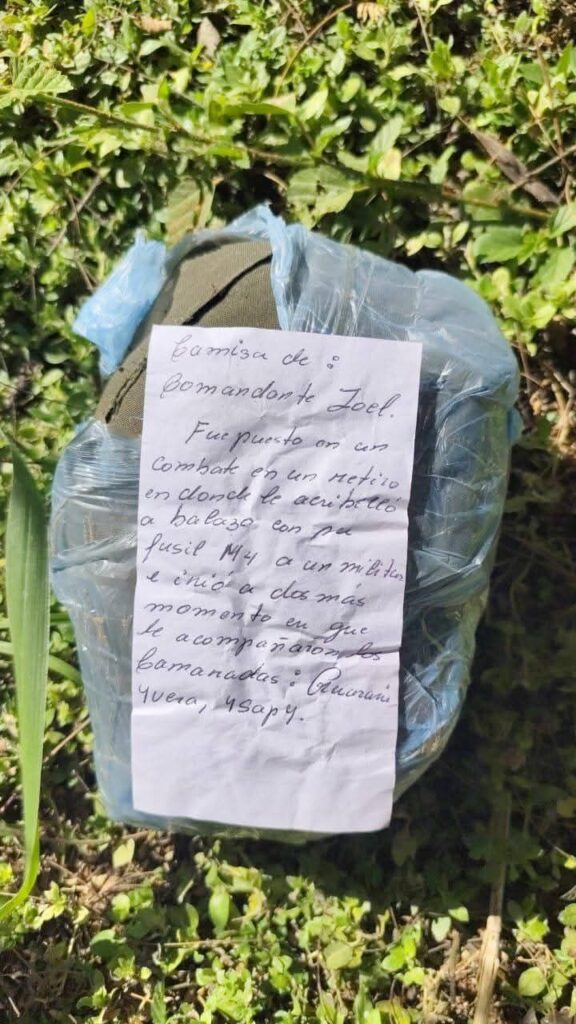 Camisa de:
Comandante Joel.
Fue puesto en un
combate en un retiro
en donde le acribelló
a balazo con su
fusil M4 a un militar
e irió a dos más
momento en que
le acompañaron los
Camaradas: Guarani
Yvera, Ysapy.